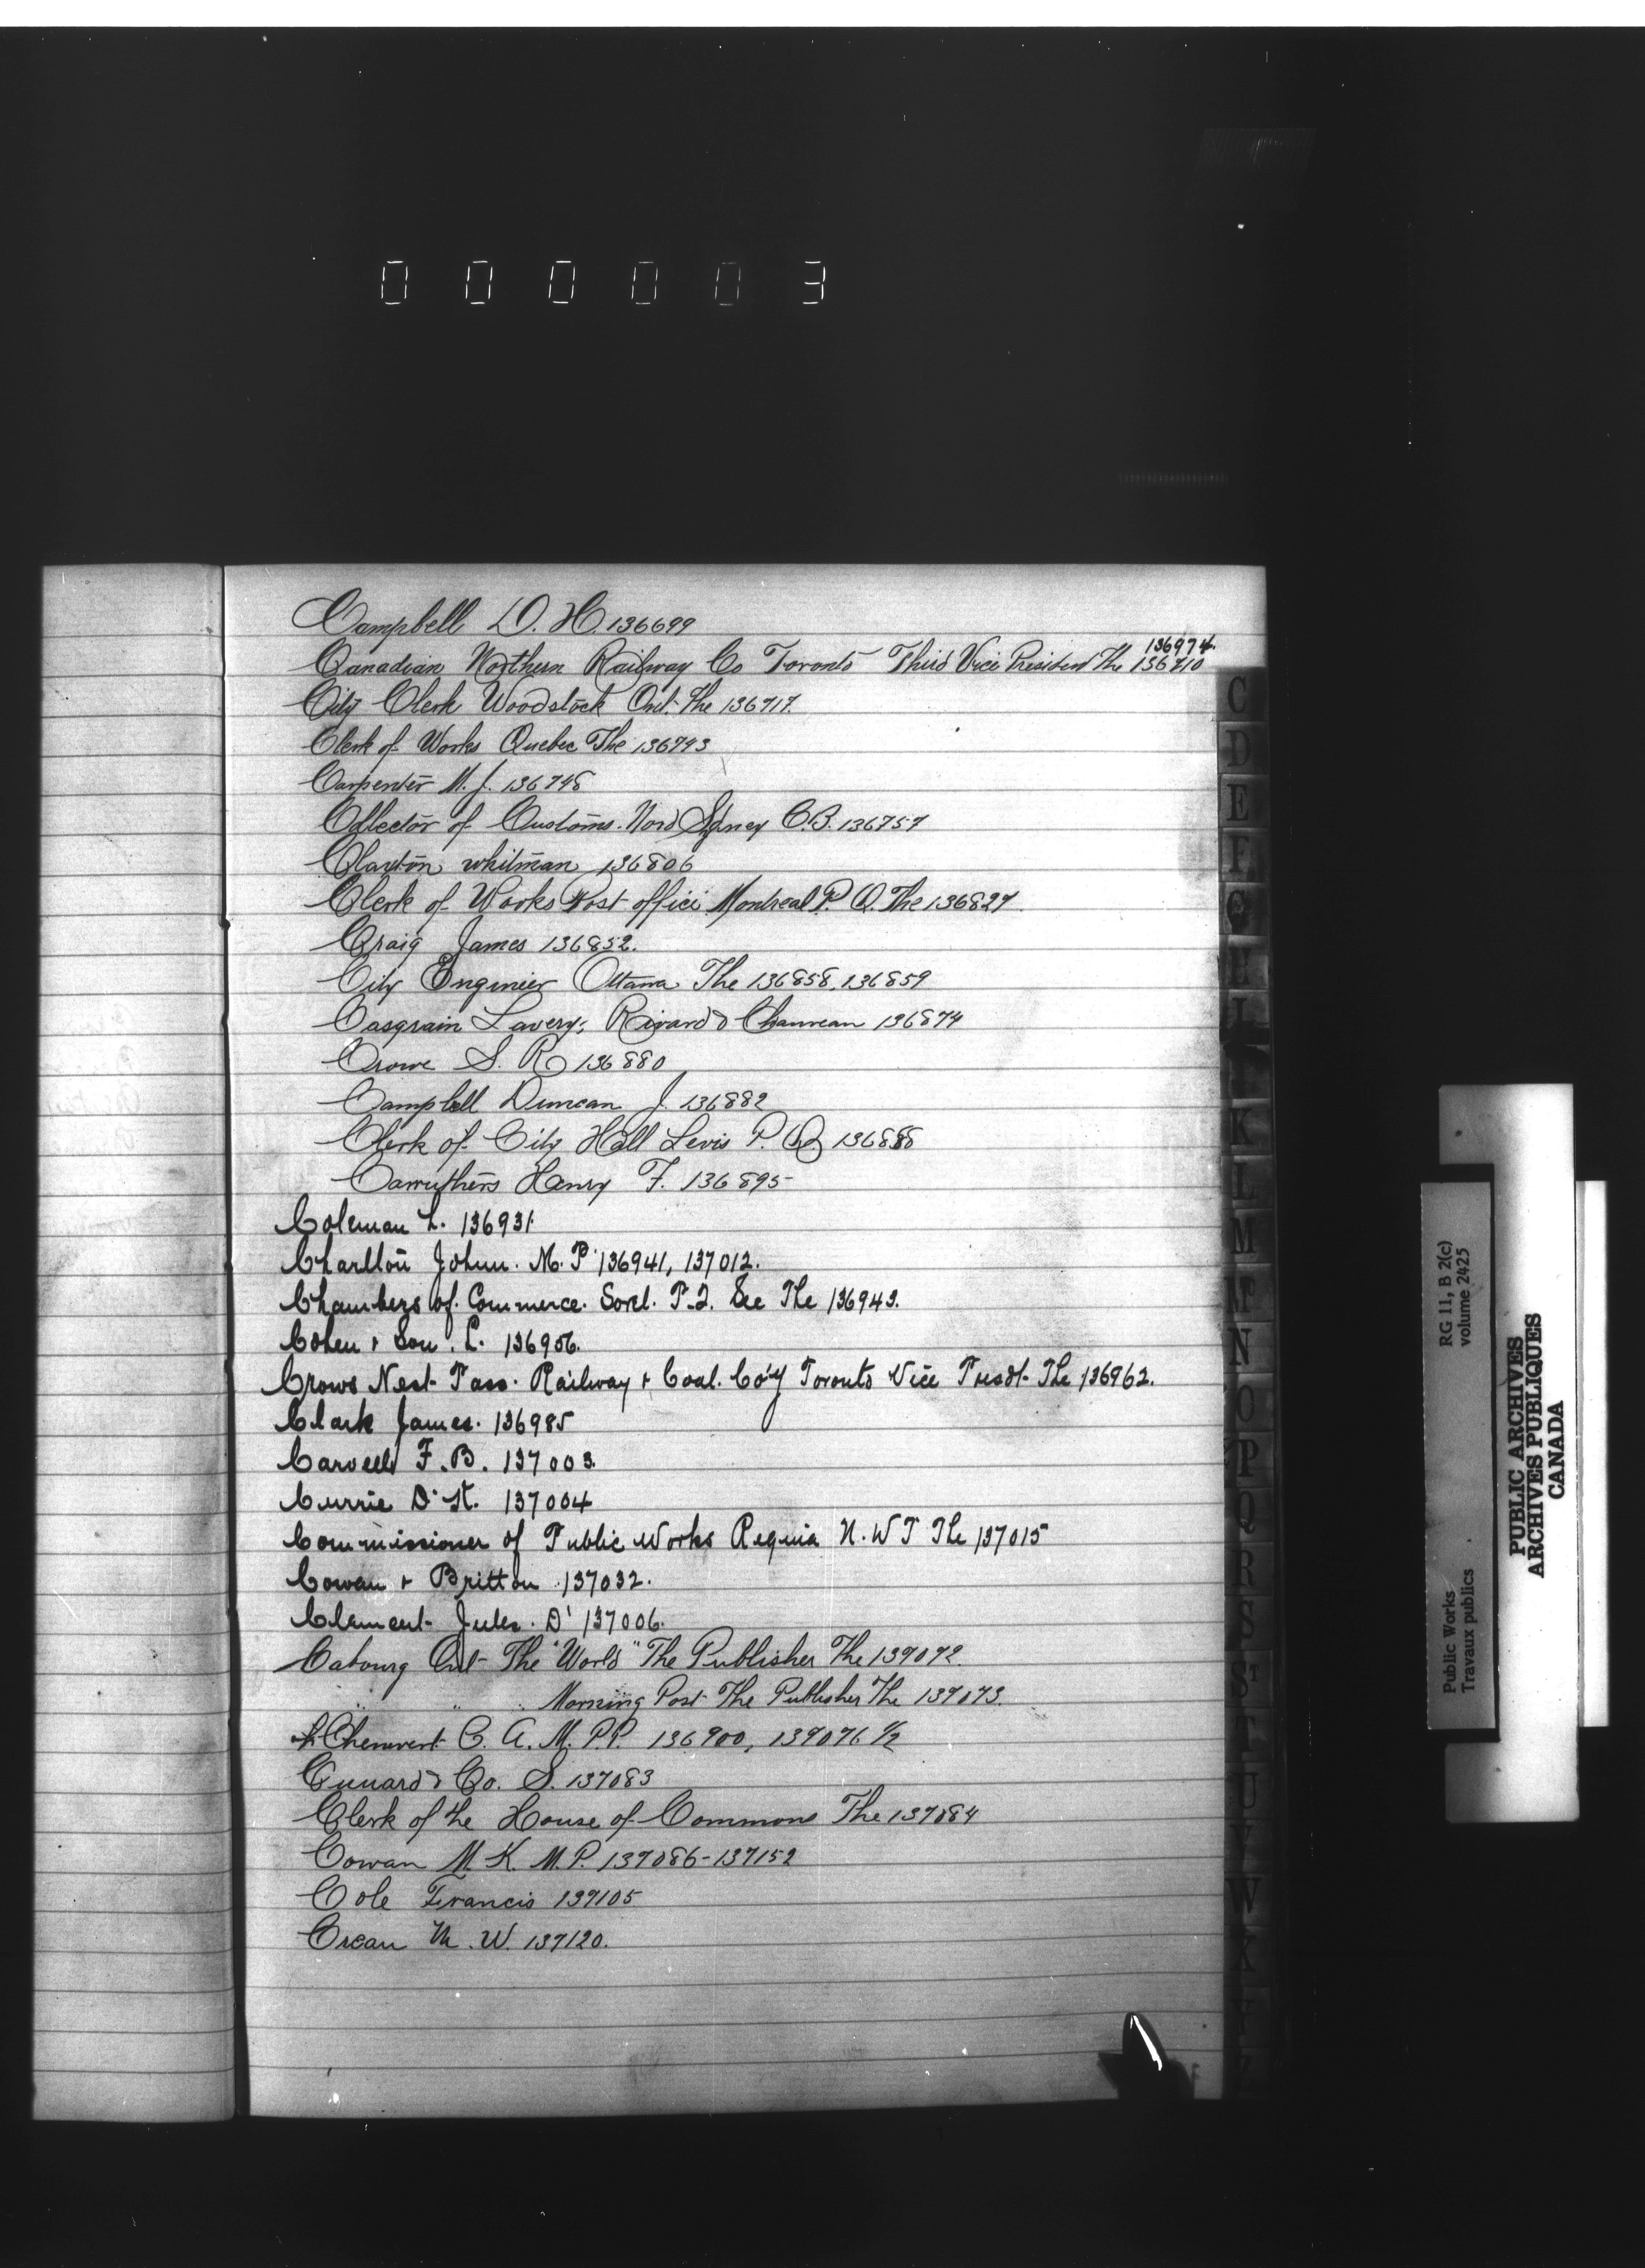 000003
Campbell D. H. 136699
136974
Canadian Northern Railway Co Toronto Third Vice President The 136710
City Clerk Woodstock Ont. The 136717.
Clerk of Works Quebec The 136743
Carpenter M. J. 136748
Collector of Customs. Nord Sydney C.B. 136757
Claxton whitman 136806
Clerk of Works Post office Montreal P. Q. The 136827
Craig James 136852.
City Enginier Ottawa The 136858, 136859
Casgrain Lavery, Rivard & Chauveau 136874
Crowe S. R 136880
Campbell Duncan J. 136882
Clerk of City Hall Levis P. Q. 136888
Carruthers Henry F. 136895
Coleman L. 136931
Charlton John. M.P 136941, 137012.
Chambers of. Commerce. Sorel. P.Q. See The 136943.
Cohen & Son. L. 136956.
Crows Nest Pass. Railway & Coal. Co'y Toronto Vice Presdt The 136962.
Clark James. 136985
Carvell F.B. 137003.
Currie D. 137004
Commissioner of Public Works Regina N.W T The 137015
Cowan & Britton 137032.
Clement Jules. D' 137006.
Cabourg Ont The "World" The Publisher The 137072.
" " " Morning Post The Publisher The 137073.
Chenevert C. A. M.P.P. 136900, 137076 1/2
Cunard & Co. S. 137083
Clerk of the House of Commons The 137084
Cowan M. K. M.P. 137086-137152
Cole Francis 137105
Crean M. W. 137120.
C
D
E
F
G
H
I
J
K
L
M
Mc
N
O
P
Q
R
S
ST
T
U
V
W
X
Y
Z
RG 11, B 2(c)
volume 2425
Public Works
Travaux publics
PUBLIC ARCHIVES
ARCHIVES PUBLIQUES
CANADA